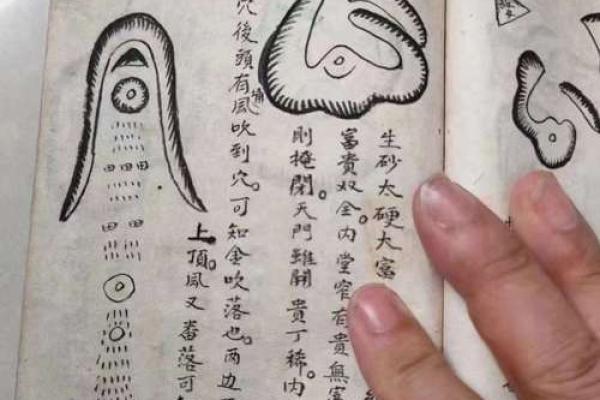 生砂太硬大富
富貴双全。内堂窄有貴無
則掩閉。天門雖開貴丁稀。内
穴後頭有風吹到穴。可知金吹落也。两边
上。頂風又番落可